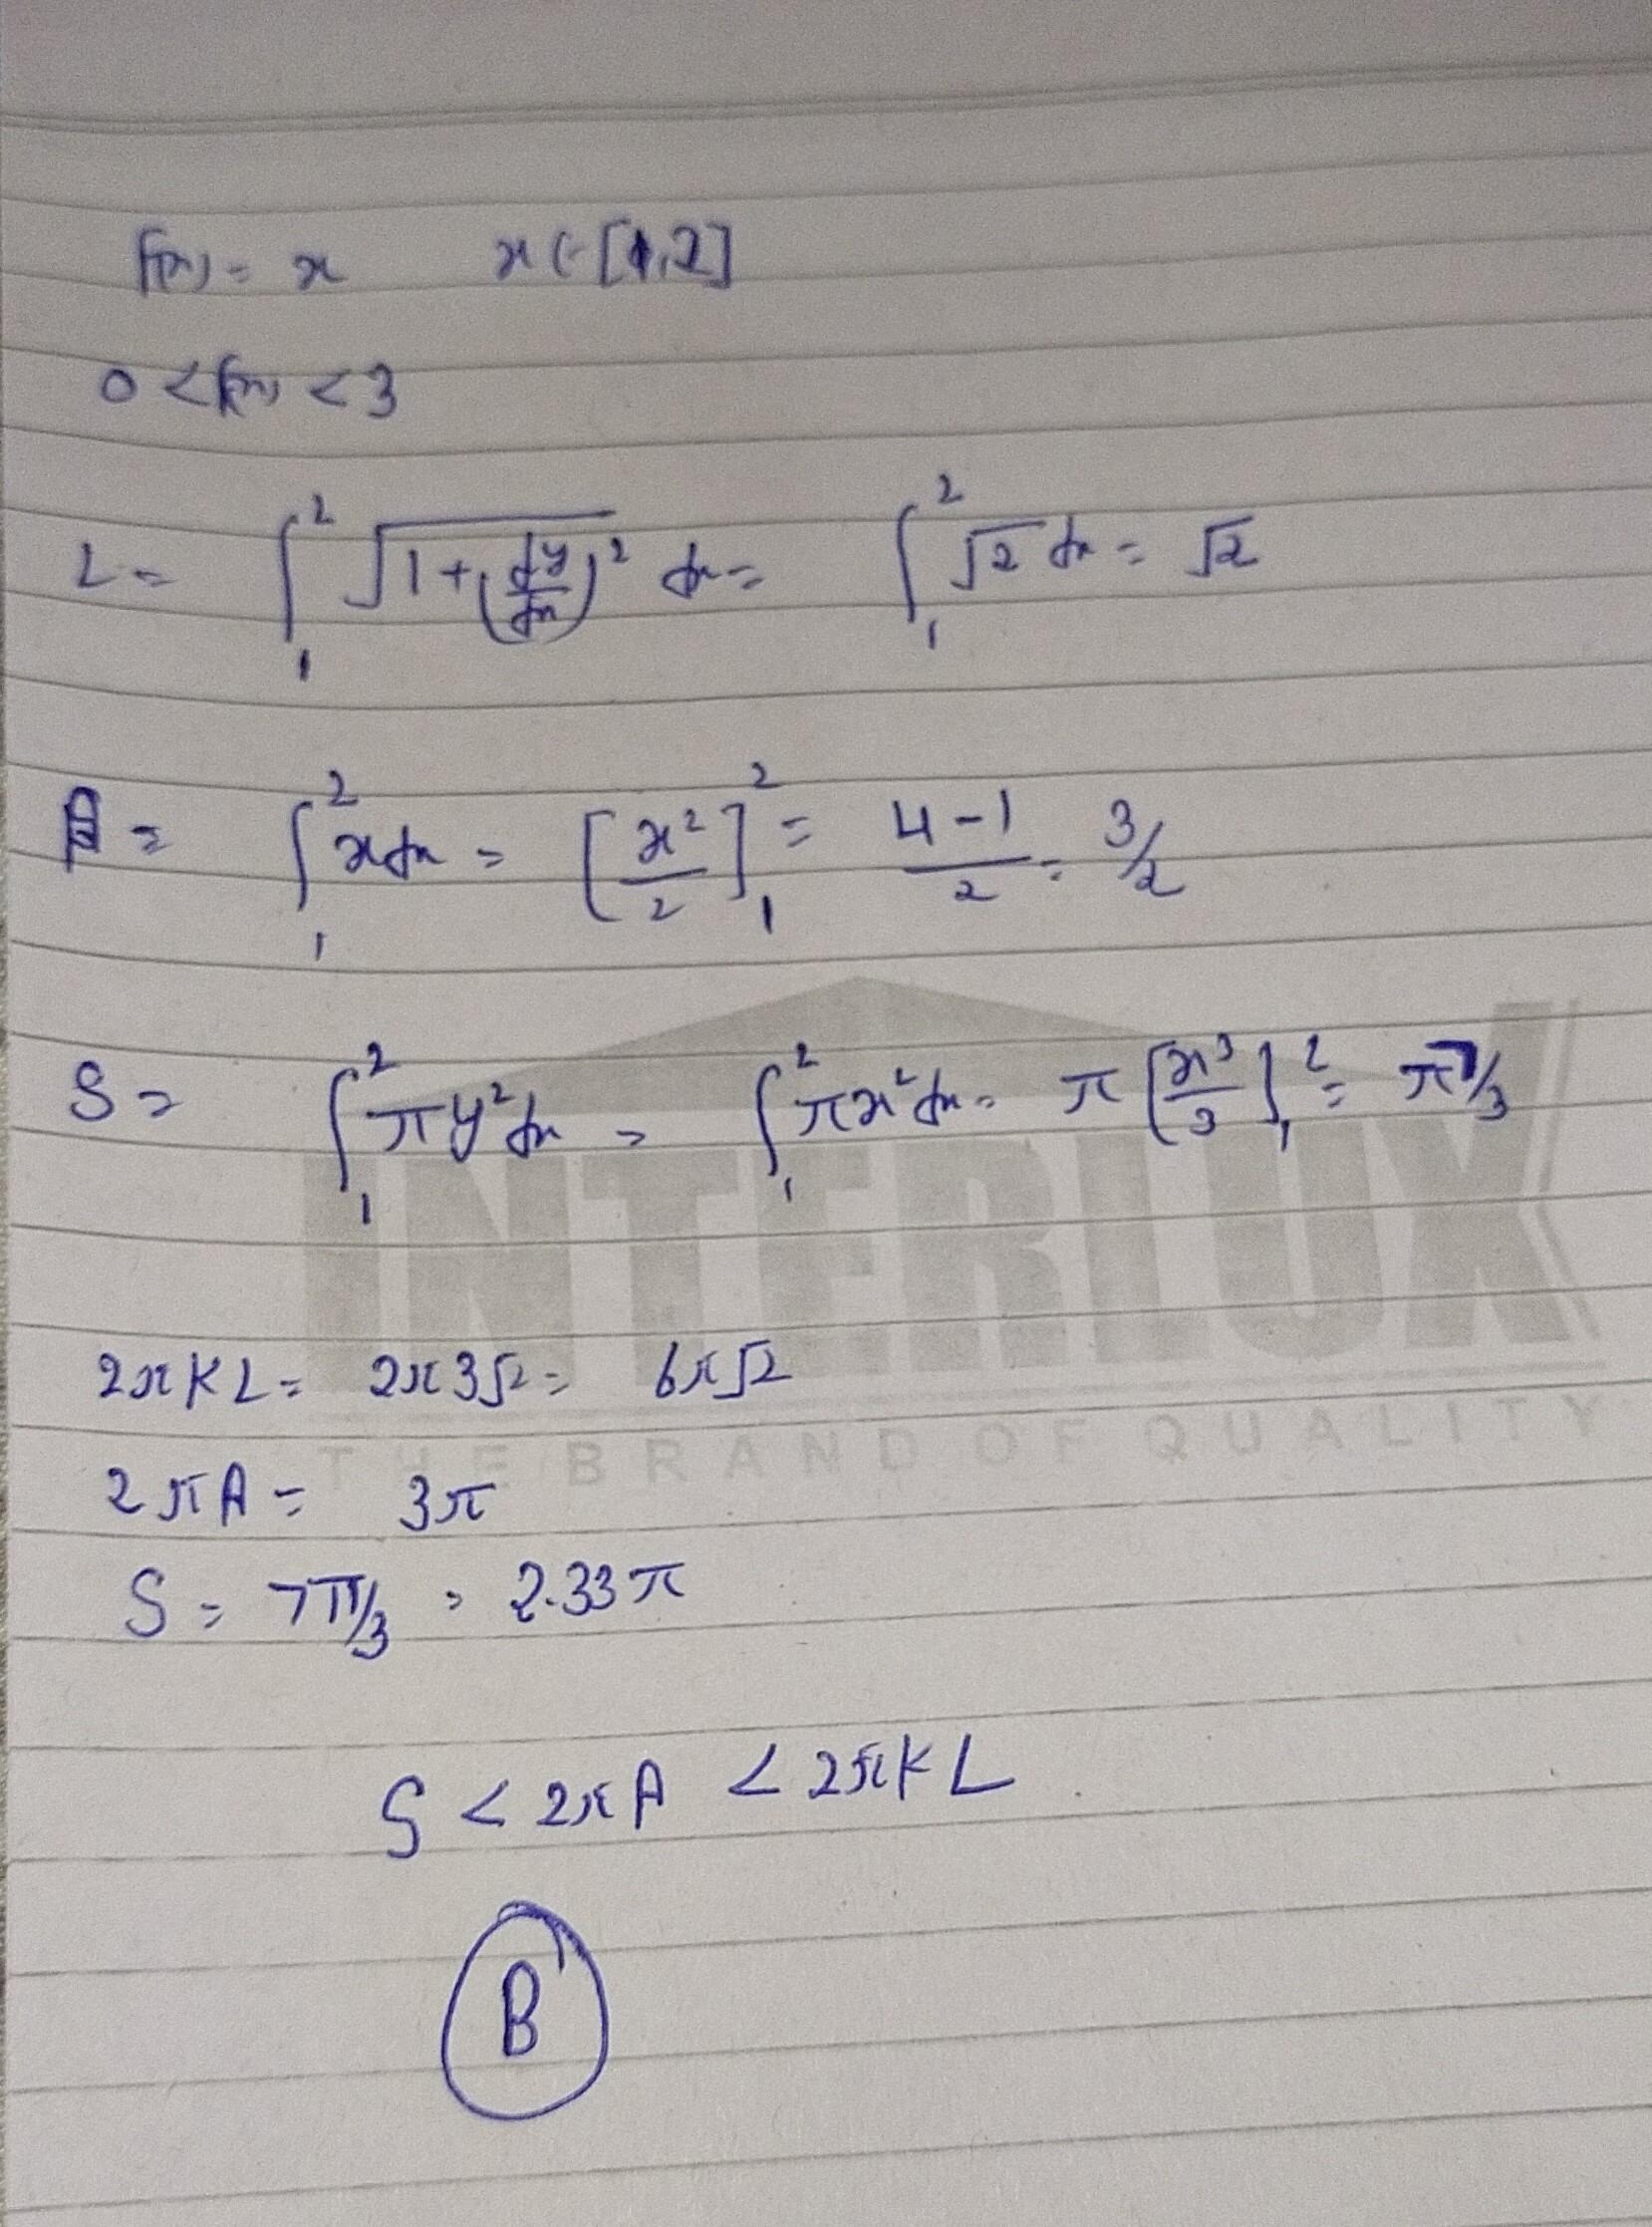 f(x) = x x ∈ [1,2]
0 < f(x) < 3
L = ∫₁² √(1+(dy/dx)²) dx = ∫₁² √2 dx = √2
A = ∫₁² x dx = [x²/2]₁² = (4-1)/2 = 3/2
S = ∫₁² πy² dx = ∫₁² πx² dx = π[x³/3]₁² = π7/3
INTERLUX
2πKL = 2π3√2 = 6π√2
THE BRAND OF QUALITY
2πA = 3π
S = 7π/3 = 2.33π
S < 2πA < 2πKL
B